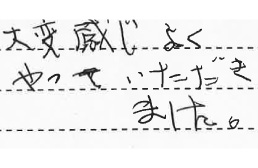 大変感じよく
やっていただき
ました。